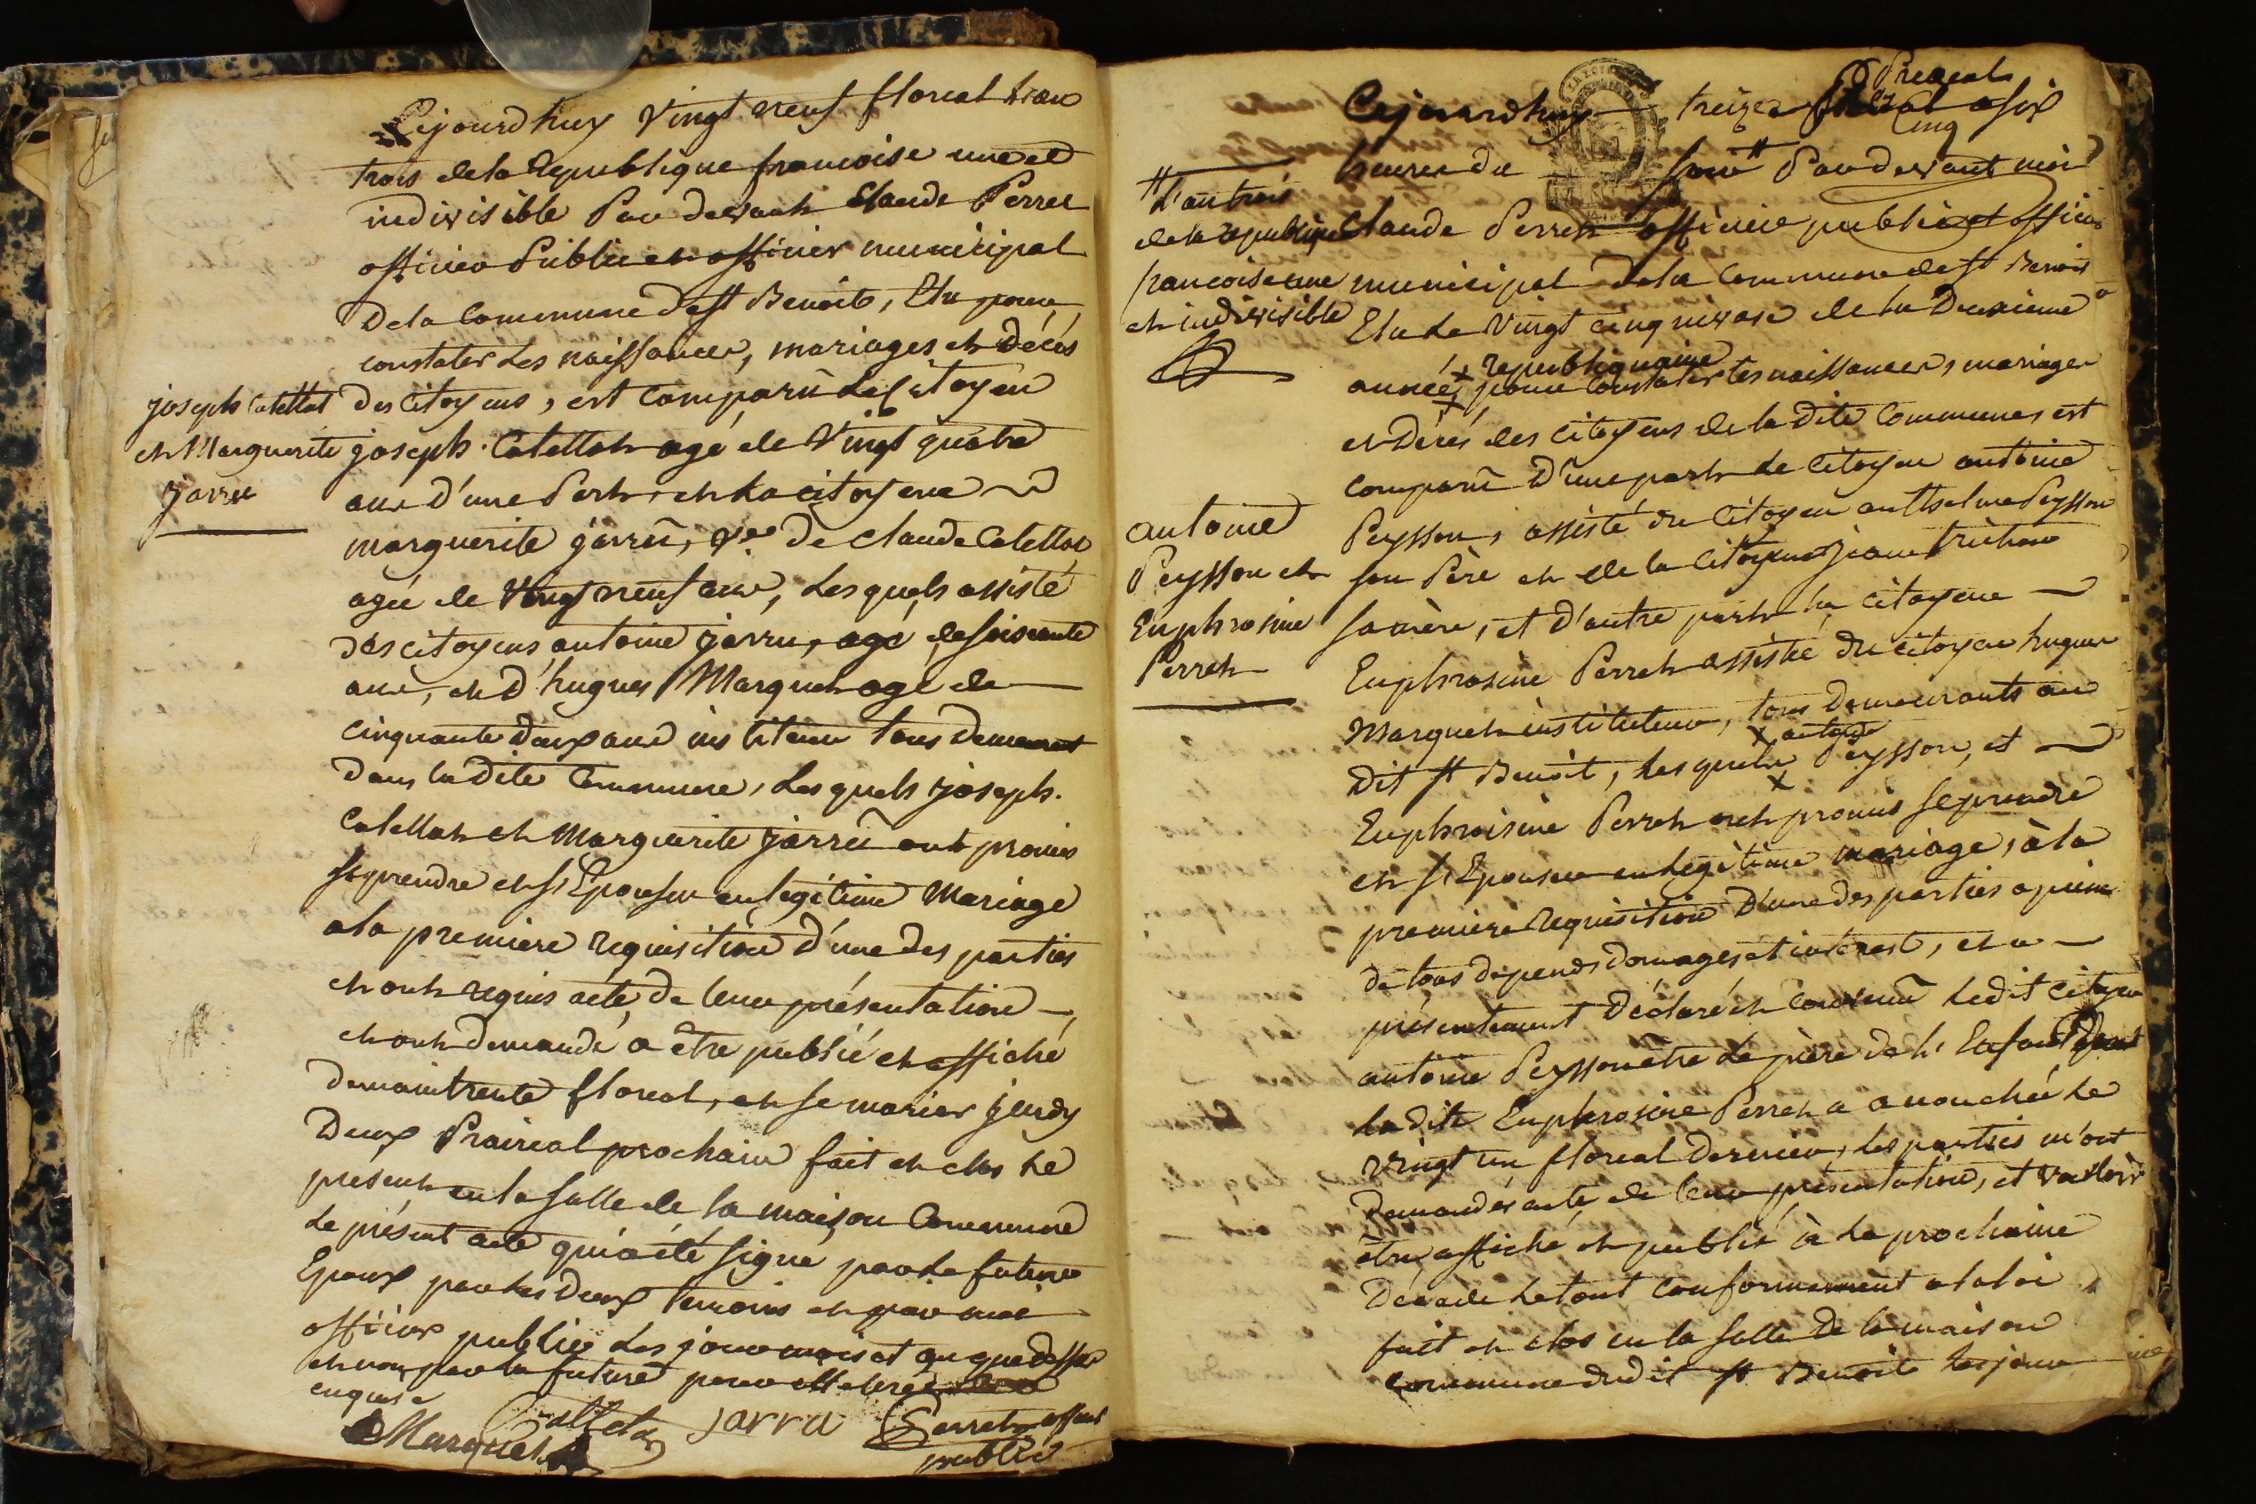 Cejourdhuy vingt neuf floreal l'an
trois de la republique francoise une et
indivisible Par devant Claude Perret
officier Public et officier municipal
De la Commune de St Benoit, Elu pour
constater les naissances, mariages et décés
joseph Catellat
et Marguerite
jarru
des citoyens, est comparû le citoyen
joseph Catellat agé de vingt quatre
ans d'une Part, et la citoyene
marguerite jarrû, ve de Claude Catellat
agée de vingt neuf ans, Les quels assisté
des citoyens antoine jarru, agé de soisante
ans, et d'hugues Marquet agé de
cinquante deux ans instituteur tous demeurant
dans la dite Commune, Les quels joseph
Catellat et Marguerite jarrû ont promis
se prendre et s'Epouser en legitime Mariage
a la premiere requisition d'une des parties
et ont requis acte de leur présentation
et ont demandé a être publié et affiché
demain trente floreal, et se marier jeudy
Deux Prairial prochain fait et clos le
present en la salle de la maison Commune
Le présent acte qui a été signé par le futur
Epoux par les deux temoins et par moi
officier public les jour mois et an que dessus
et non par la future pour illeterée
enquise
Marquet Cattelat jarru Perret offier
public
Cejourdhuy treize Preréal a six
Cinq
heures du soir # Par devant moi
# L'an trois
de la republique
francoise une
et indivisible
Claude Perret officier public et officier
municipal de la Commune de St Benoit
Elu le vingt cinq nivose de la Deuxieme
année x republiquaine pour constater les naissances, mariages
et Décés des citoyens de la dite Commune, est
comparû D'une part le citoyen antoine
antoine
Peysson et
Euphrosine
Perret
Peysson, assisté du citoyen anthselme Peysson
son Père et de la citoyene jeane trichon
sa mère, et d'autre part la citoyene
Euphrosine Perret assistée du citoyen hugues
Marquet instituteur, tous Demeurants au
Dit St Benoit, les quels x antoine Peysson, et
Euphroisine Perret ont promis se prendre
et s'Epouser en legitime mariage, à la
premiere requisition D'une des parties a peine
de tous depends domages et interest, et a
présentement Déclaré et convenû ledit citoyen
antoine Peysson être le père de l'Enfant dont
la dite Euphrosine Perret a acouchée le
vingt un floreal dernier, les parties m'ont
Demandés acte de leur présentation, et vouloir
être affiché et publié à la prochaine
Décade le tout conformement a la loi
fait et clos en la salle de la maison
commune dudit St Benoit les jour